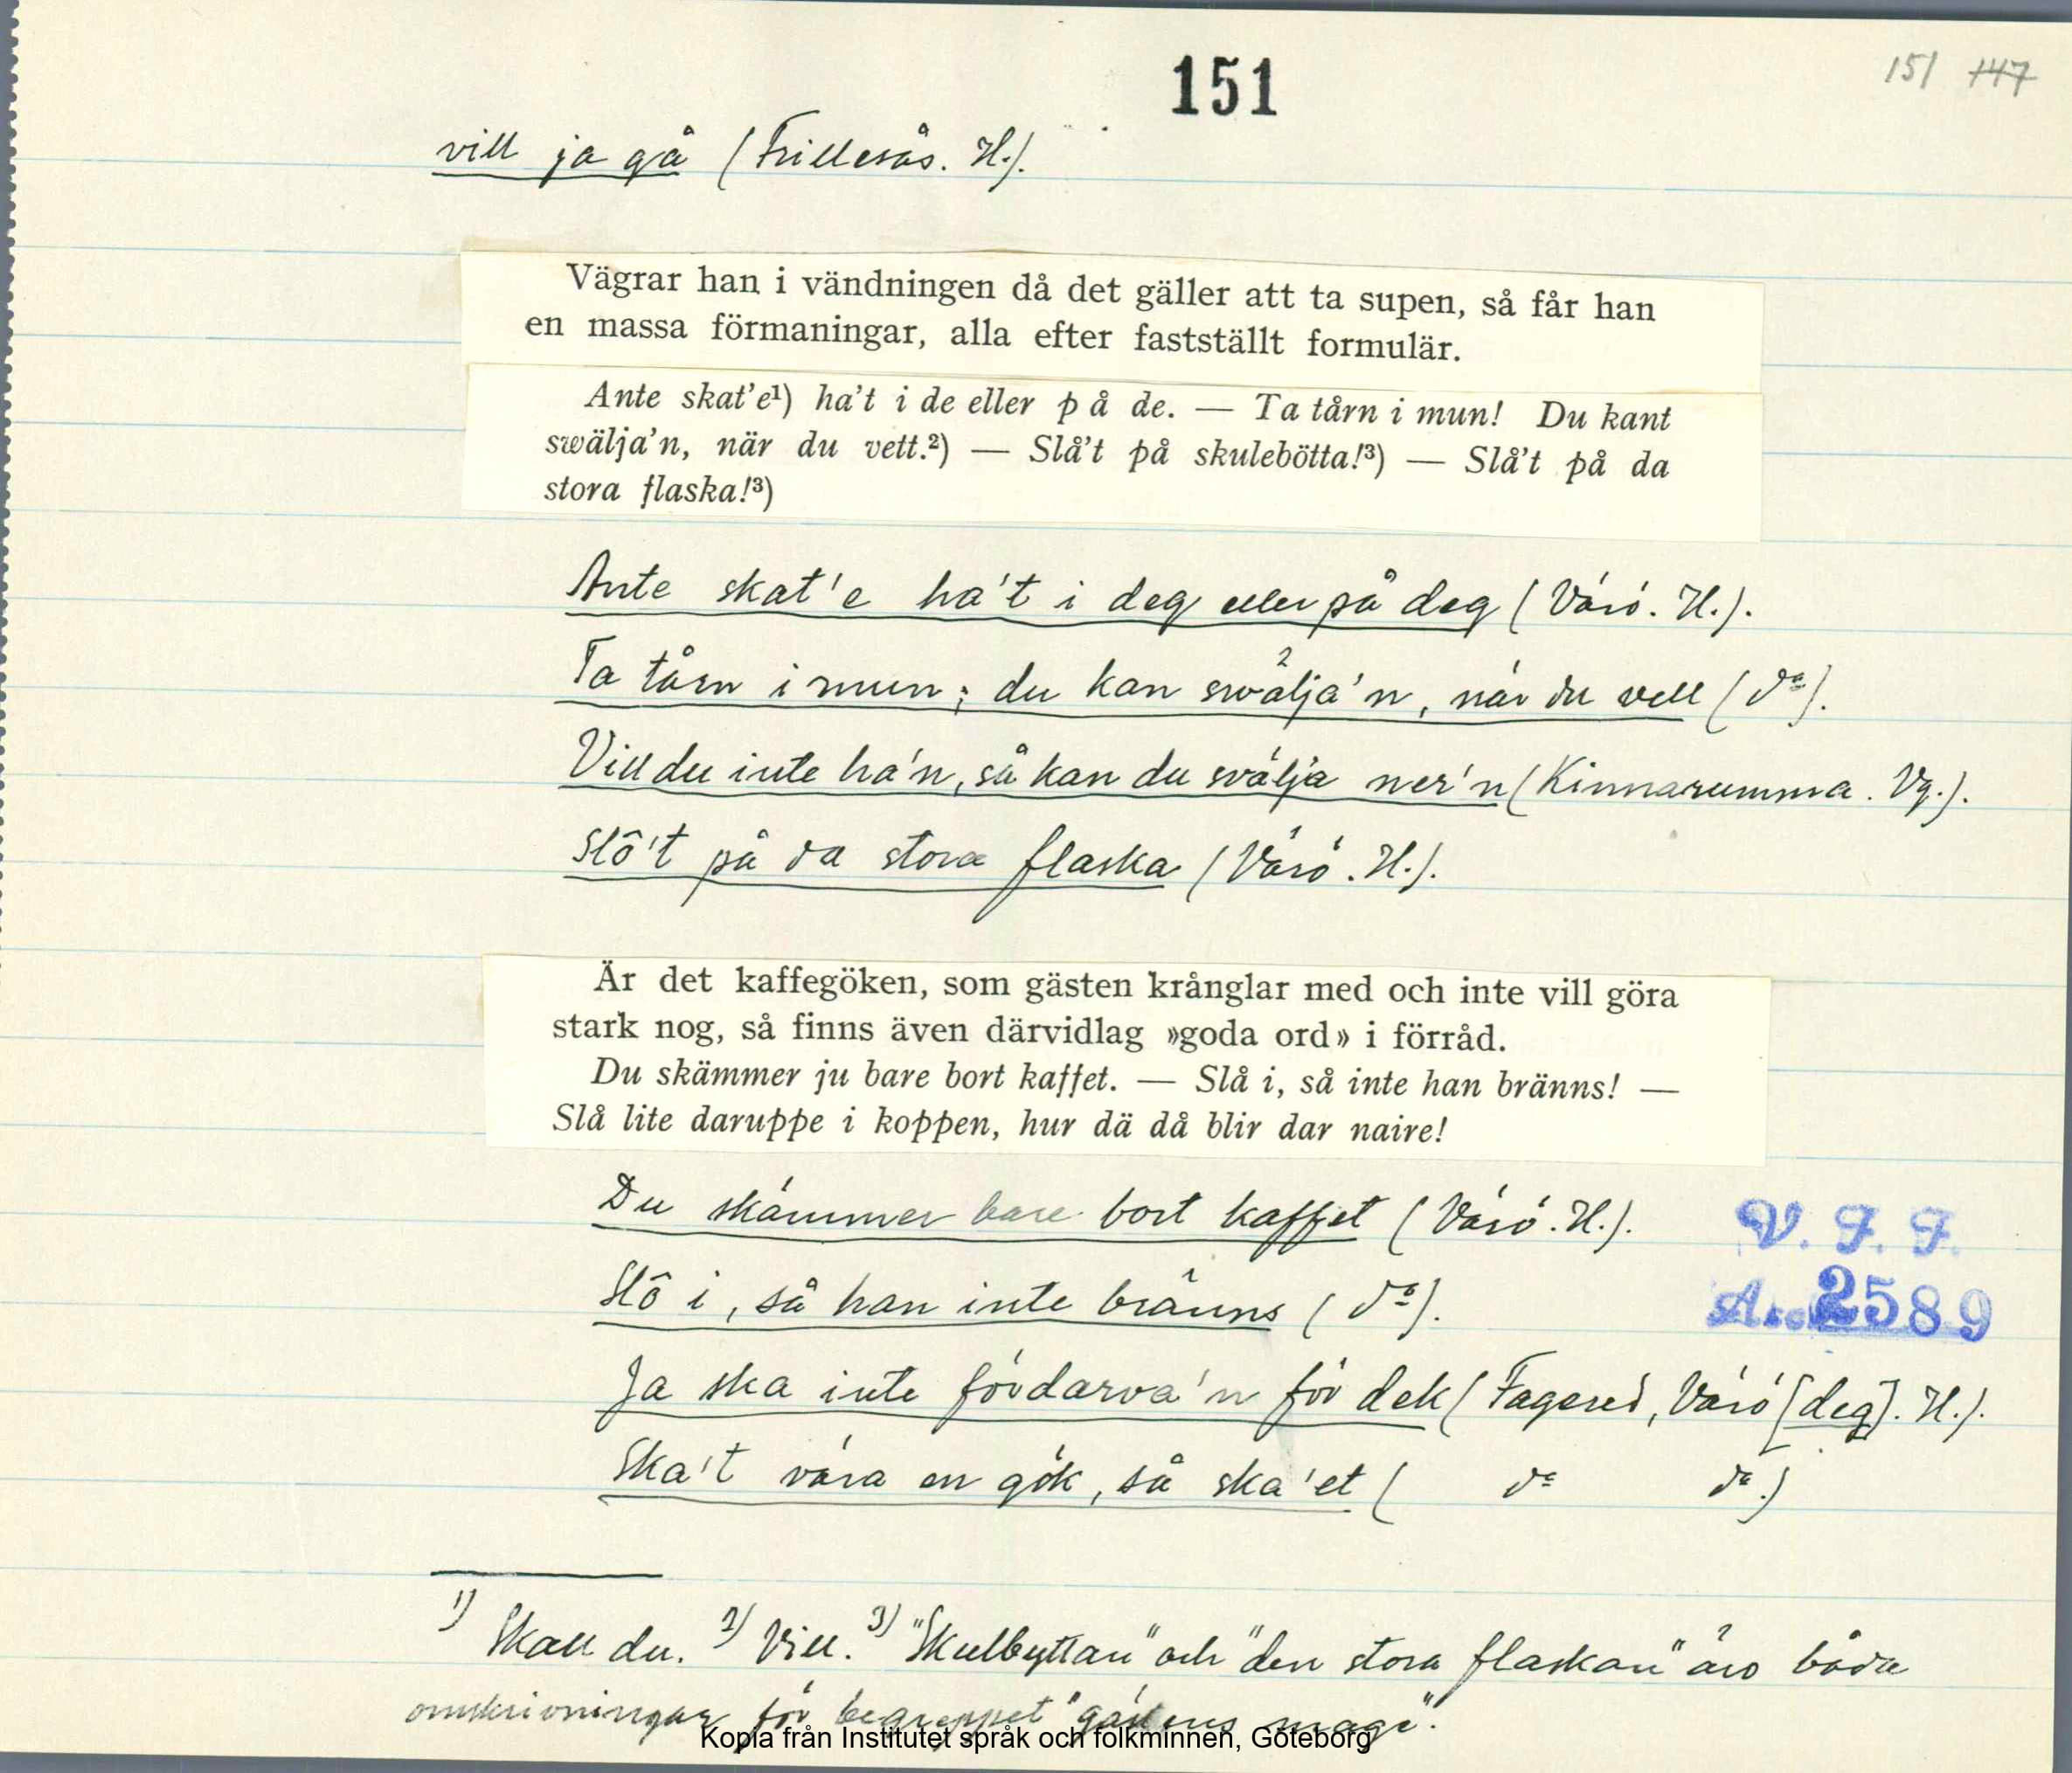 151
151 147
vill ja gå (Frillesås. H.).
Vägrar han i vändningen då det gäller att ta supen, så får han
en massa förmaningar, alla efter fastställt formulär.
Ante skat'e¹) ha't i de eller på de. — Ta tårn i mun! Du kant
swälja'n, när du vett.²) — Slå't på skulebötta!³) — Slå't på da
stora flaska!³)
Ante skat'e ha't i deg eller på deg (Värö. H.).
Ta tårn i mun; du kan swälja'n, når du vell (dº).
Vill du inte ha'n, så kan du svälja ner'n (Kinnarumma. Vg.).
Slô't på da stora flaska (Värö. H.).
Är det kaffegöken, som gästen krånglar med och inte vill göra
stark nog, så finns även därvidlag »goda ord» i förråd.
Du skämmer ju bare bort kaffet. — Slå i, så inte han bränns! —
Slå lite daruppe i koppen, hur dä då blir dar naire!
Du skämmer bare bort kaffet (Värö. H.).
V. F. F.
Slô i, så han inte bränns (dº).
Acc 2589
Ja ska inte fördarva'n för dek (Fagered, Värö [deg]. H.).
Ska't vära en gök, så ska'et ( dº dº.)
1) Skall du. 2) Vill. 3) "Skulbyttan" och "den stora flaskan" äro båda
omskrivningar för begreppet "gästens mage".
Kopia från Institutet språk och folkminnen, Göteborg